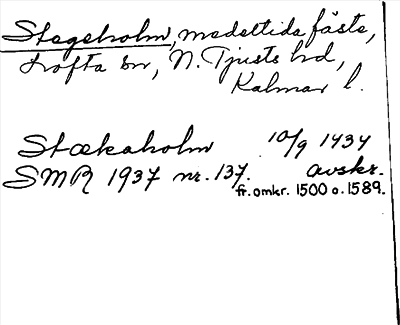 Stegeholm, medeltida fäste,
Lofta sn, N. Tjusts hd,
Kalmar l.
Stækaholm 10/9 1434
SMR 1937 nr. 137. avskr.
fr. omkr. 1500 o. 1589.